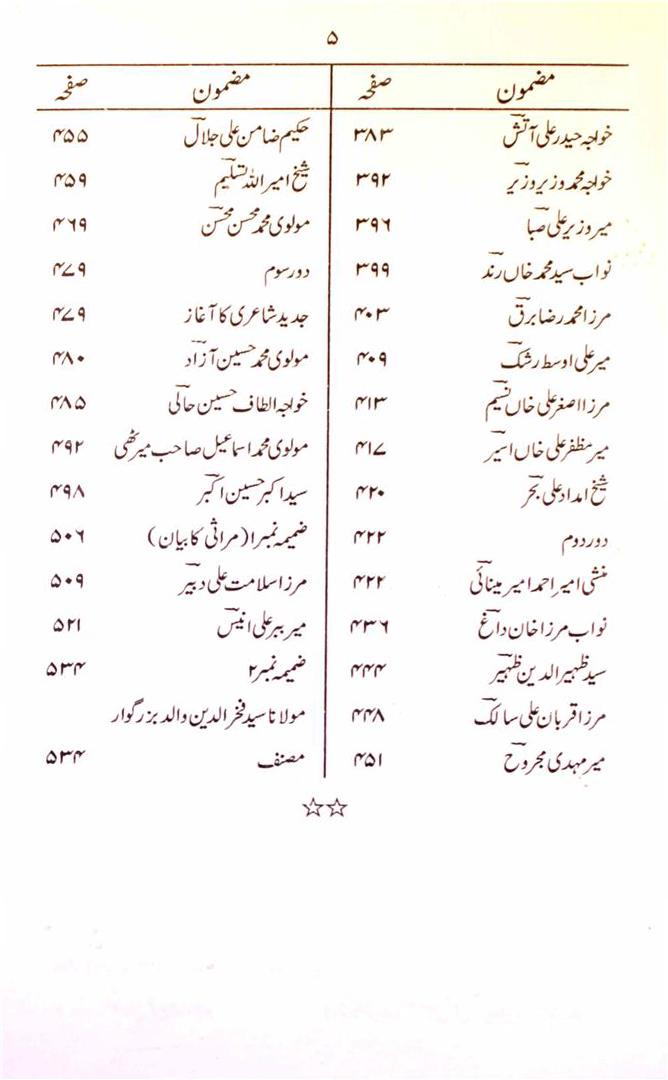 ۵
مضمون صفحہ
خواجہ حیدر علی آتش ۳۸۳
خواجہ محمد وزیر وزیر ۳۹۲
میر وزیر علی صبا ۳۹۶
نواب سید محمد خاں رند ۳۹۹
مرزا محمد رضا برق ۴۰۳
میر علی اوسط رشک ۴۰۹
مرزا اصغر علی خاں نسیم ۴۱۳
میر مظفر علی خاں اسیر ۴۱۷
شیخ امداد علی بحر ۴۲۰
دور دوم ۴۲۲
منشی امیر احمد امیر مینائی ۴۲۲
نواب مرزا خان داغ ۴۳۶
سید ظہیر الدین ظہیر ۴۴۴
مرزا قربان علی سالک ۴۴۸
میر مہدی مجروح ۴۵۱
مضمون صفحہ
حکیم ضامن علی جلال ۴۵۵
شیخ امیر اللہ تسلیم ۴۵۹
مولوی محمد محسن محسن ۴۶۹
دور سوم ۴۷۹
جدید شاعری کا آغاز ۴۷۹
مولوی محمد حسین آزاد ۴۸۰
خواجہ الطاف حسین حالی ۴۸۵
مولوی محمد اسماعیل صاحب میرٹھی ۴۹۲
سید اکبر حسین اکبر ۴۹۸
ضمیمہ نمبر۱ (مراثی کا بیان) ۵۰۶
مرزا سلامت علی دبیر ۵۰۹
میر ببر علی انیس ۵۲۱
ضمیمہ نمبر۲ ۵۳۴
مولانا سید فخر الدین والد بزرگوار
مصنف ۵۳۴
☆☆